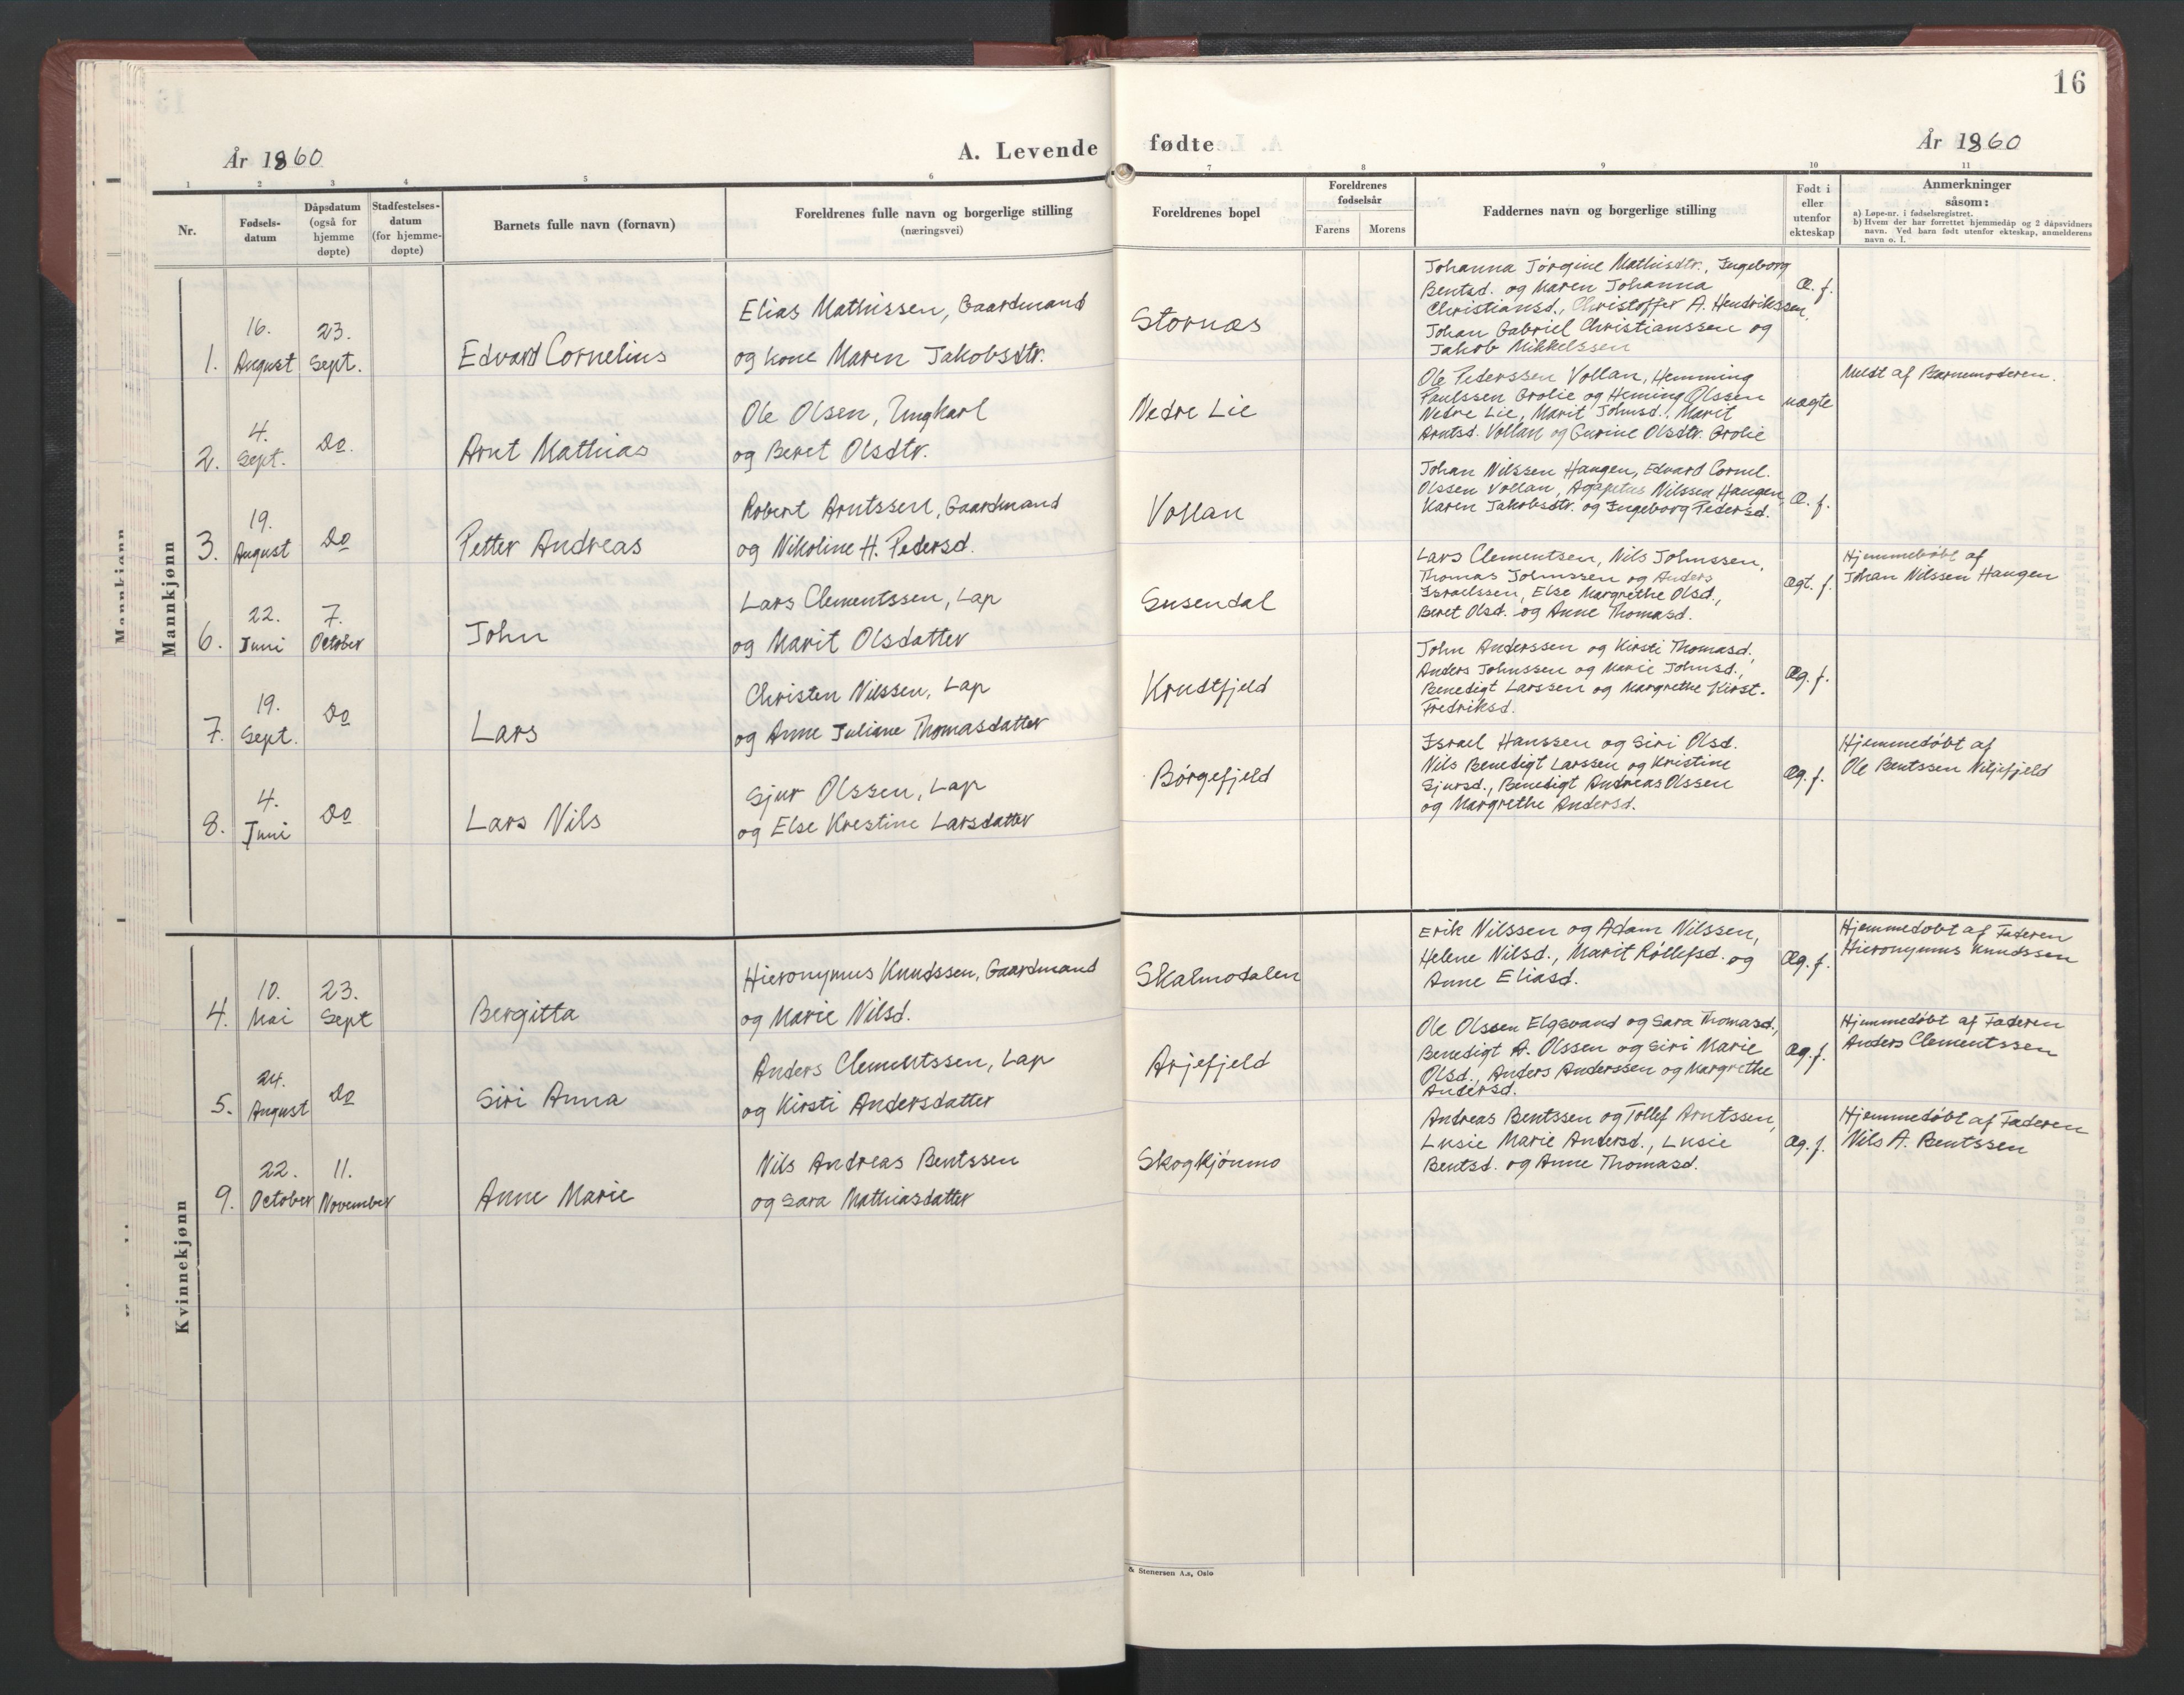 16
År 1860
A. Levende fødte
År 1860
1 2 3 4 5 6 7 8 9 10 11
Nr.
Fødsels-
datum
Dåpsdatum
(også for
hjemme
døpte)
Stadfestelses-
datum
(for hjemme-
døpte)
Barnets fulle navn (fornavn)
Foreldrenes fulle navn og borgerlige stilling
(næringsvei)
Foreldrenes bopel
Foreldrenes
fødselsår
Farens Morens
Faddernes navn og borgerlige stilling
Født i
eller
utenfor
ekteskap
Anmerkninger
såsom:
a) Løpe-nr. i fødselsregistret.
b) Hvem der har forrettet hjemmedåp og 2 dåpsvidners
navn. Ved barn født utenfor ekteskap, anmelderens
navn o. l.
Mannkjønn
Mannkjønn
1. 16. August 23. Sept. Edvard Cornelius
Elias Mathissen, Gaardmand
og kone Maren Jakobsdtr.
Stornæs
Johanna Jørgine Mathisdtr., Ingeborg
Bentsd. og Maren Johanna
Christiansd., Christoffer A. Hendrikssen,
Johan Gabriel Christianssen og
Jakob Mikkelssen
Æ. f.
2. 4. Sept. Do. Arnt Mathias
Ole Olsen, Ungkarl
og Beret Olsdtr.
Nedre Lie
Ole Pederssen Vollan, Hemming
Paulssen Grolie og Heming Olssen
Nedre Lie, Marit Johnsd., Marit
Arntsd. Vollan og Gurine Olsdtr. Grolie
uægte
Meldt af Barnemoderen.
3. 19. August Do Petter Andreas
Robert Arntssen, Gaardmand
og Nikoline H. Pedersd.
Vollan
Johan Nilssen Haugen, Edvard Cornel.
Olssen Vollan, Agaptus Nilssen Haugen,
Karen Jakobsdtr. og Ingeborg Pedersd.
Æ. f.
6. 22. Juni 7. October John
Lars Clementssen, Lap
og Marit Olsdatter
Susendal
Lars Clementsen, Nils Johnssen,
Thomas Johnssen og Anders
Israelssen, Else Margrethe Olsd.,
Beret Olsd. og Anne Thomasd.
Ægt. f.
Hjemmedøbt af
Johan Nilssen Haugen
7. 19. Sept. Do Lars
Christen Nilssen, Lap
og Anne Juliane Thomasdatter
Krudtfjeld
John Anderssen og Kirsti Thomasd.,
Anders Johnssen og Marie Johnsd.,
Benedigt Larssen og Margrethe Kirst.
Fredriksd.
Æg. f.
8. 4. Juni Do Lars Nils
Sjur Olssen, Lap
og Else Krestine Larsdatter
Børgefjeld
Israel Hanssen og Siri Olsd.
Nils Benedigt Larssen og Kristine
Sjursd., Benedigt Andreas Olssen
og Margrethe Andersd.
Æg. f.
Hjemmedøbt af
Ole Bentssen Viljefjeld
Kvinnekjønn
4. 10. Mai 23. Sept Bergitta
Hieronymus Knudssen, Gaardmand
og Marie Nilsd.
Skalmodalen
Erik Nilssen og Adam Nilssen,
Helene Nilsd., Marit Røllefsd. og
Anne Eliasd.
Æg. f.
Hjemmedøbt af Faderen
Hieronymus Knudssen
5. 24. August Do Siri Anna
Anders Clementssen, Lap
og Kirsti Andersdatter
Arjefjeld
Ole Olssen Elgsvand og Sara Thomasd.,
Benedigt A. Olssen og Siri Marie
Olsd., Anders Anderssen og Margrethe
Andersd.
Æg. f.
Hjemmedøbt af Faderen
Anders Clementssen
9. 22. October 11. November Anne Marie
Nils Andreas Bentssen
og Sara Mathiasdatter
Skogkjønmo
Andreas Bentssen og Tollef Arntssen,
Lusie Marie Andersd., Lusie
Bentsd. og Anne Thomasd.
Æg. f.
Hjemmedøbt af Faderen
Nils A. Bentssen
& Stenersen A.s, Oslo